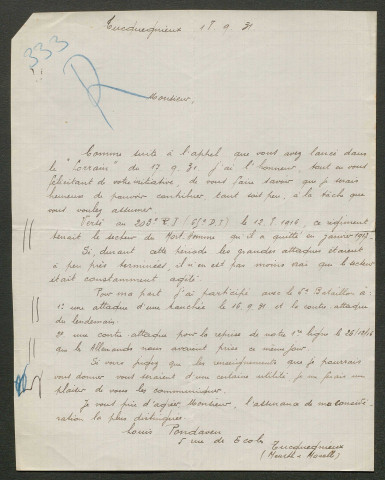 Tucquegnieux 18.9.31
333
R
Monsieur,
Comme suite à l'appel que vous avez lancé dans
le "Lorrain" du 17.9.31, j'ai l'honneur, tout en vous
félicitant de votre initiative, de vous faire savoir que je serais
heureux de pouvoir contribuer tant soit peu, à la tâche que
vous voulez assumer.
Versé au 203e R.I. (67e D.I) le 12.8.1916, ce régiment
tenait le secteur du Mort Homme qu'il a quitté en janvier 1917.
Si, durant cette période les grandes attaques étaient
à peu près terminées, il n'en est pas moins vrai que le secteur
était constamment agité.
Pour ma part j'ai participé avec le 6e Bataillon à
1º une attaque d'une tranchée le 15.9. et la contre attaque
du lendemain.
2º une contre-attaque pour la reprise de notre 1ère ligne le 26/12/16
que les Allemands nous avaient prise ce même jour.
Si vous jugez que les renseignements que je pourrais
vous donner vous seraient d'une certaine utilité je me ferais un
plaisir de vous les communiquer.
Je vous prie d'agréer, Monsieur, l'assurance de ma considé-
ration la plus distinguée.
Louis Pondaven
5 rue de Ecole
Tucquegnieux
(Meurthe & Moselle)